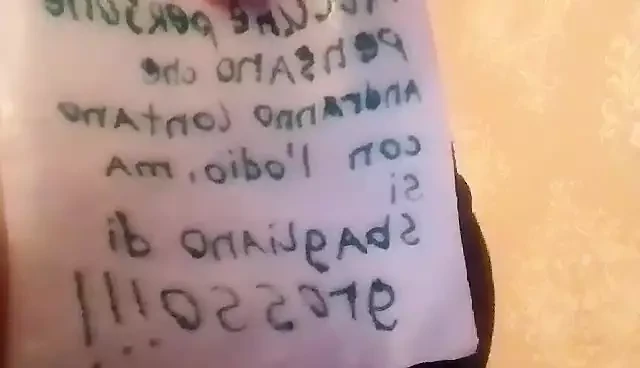 Alcune persone
pensano che
Andranno lontano
con l'odio, ma
si
sbagliano di
grosso!!!